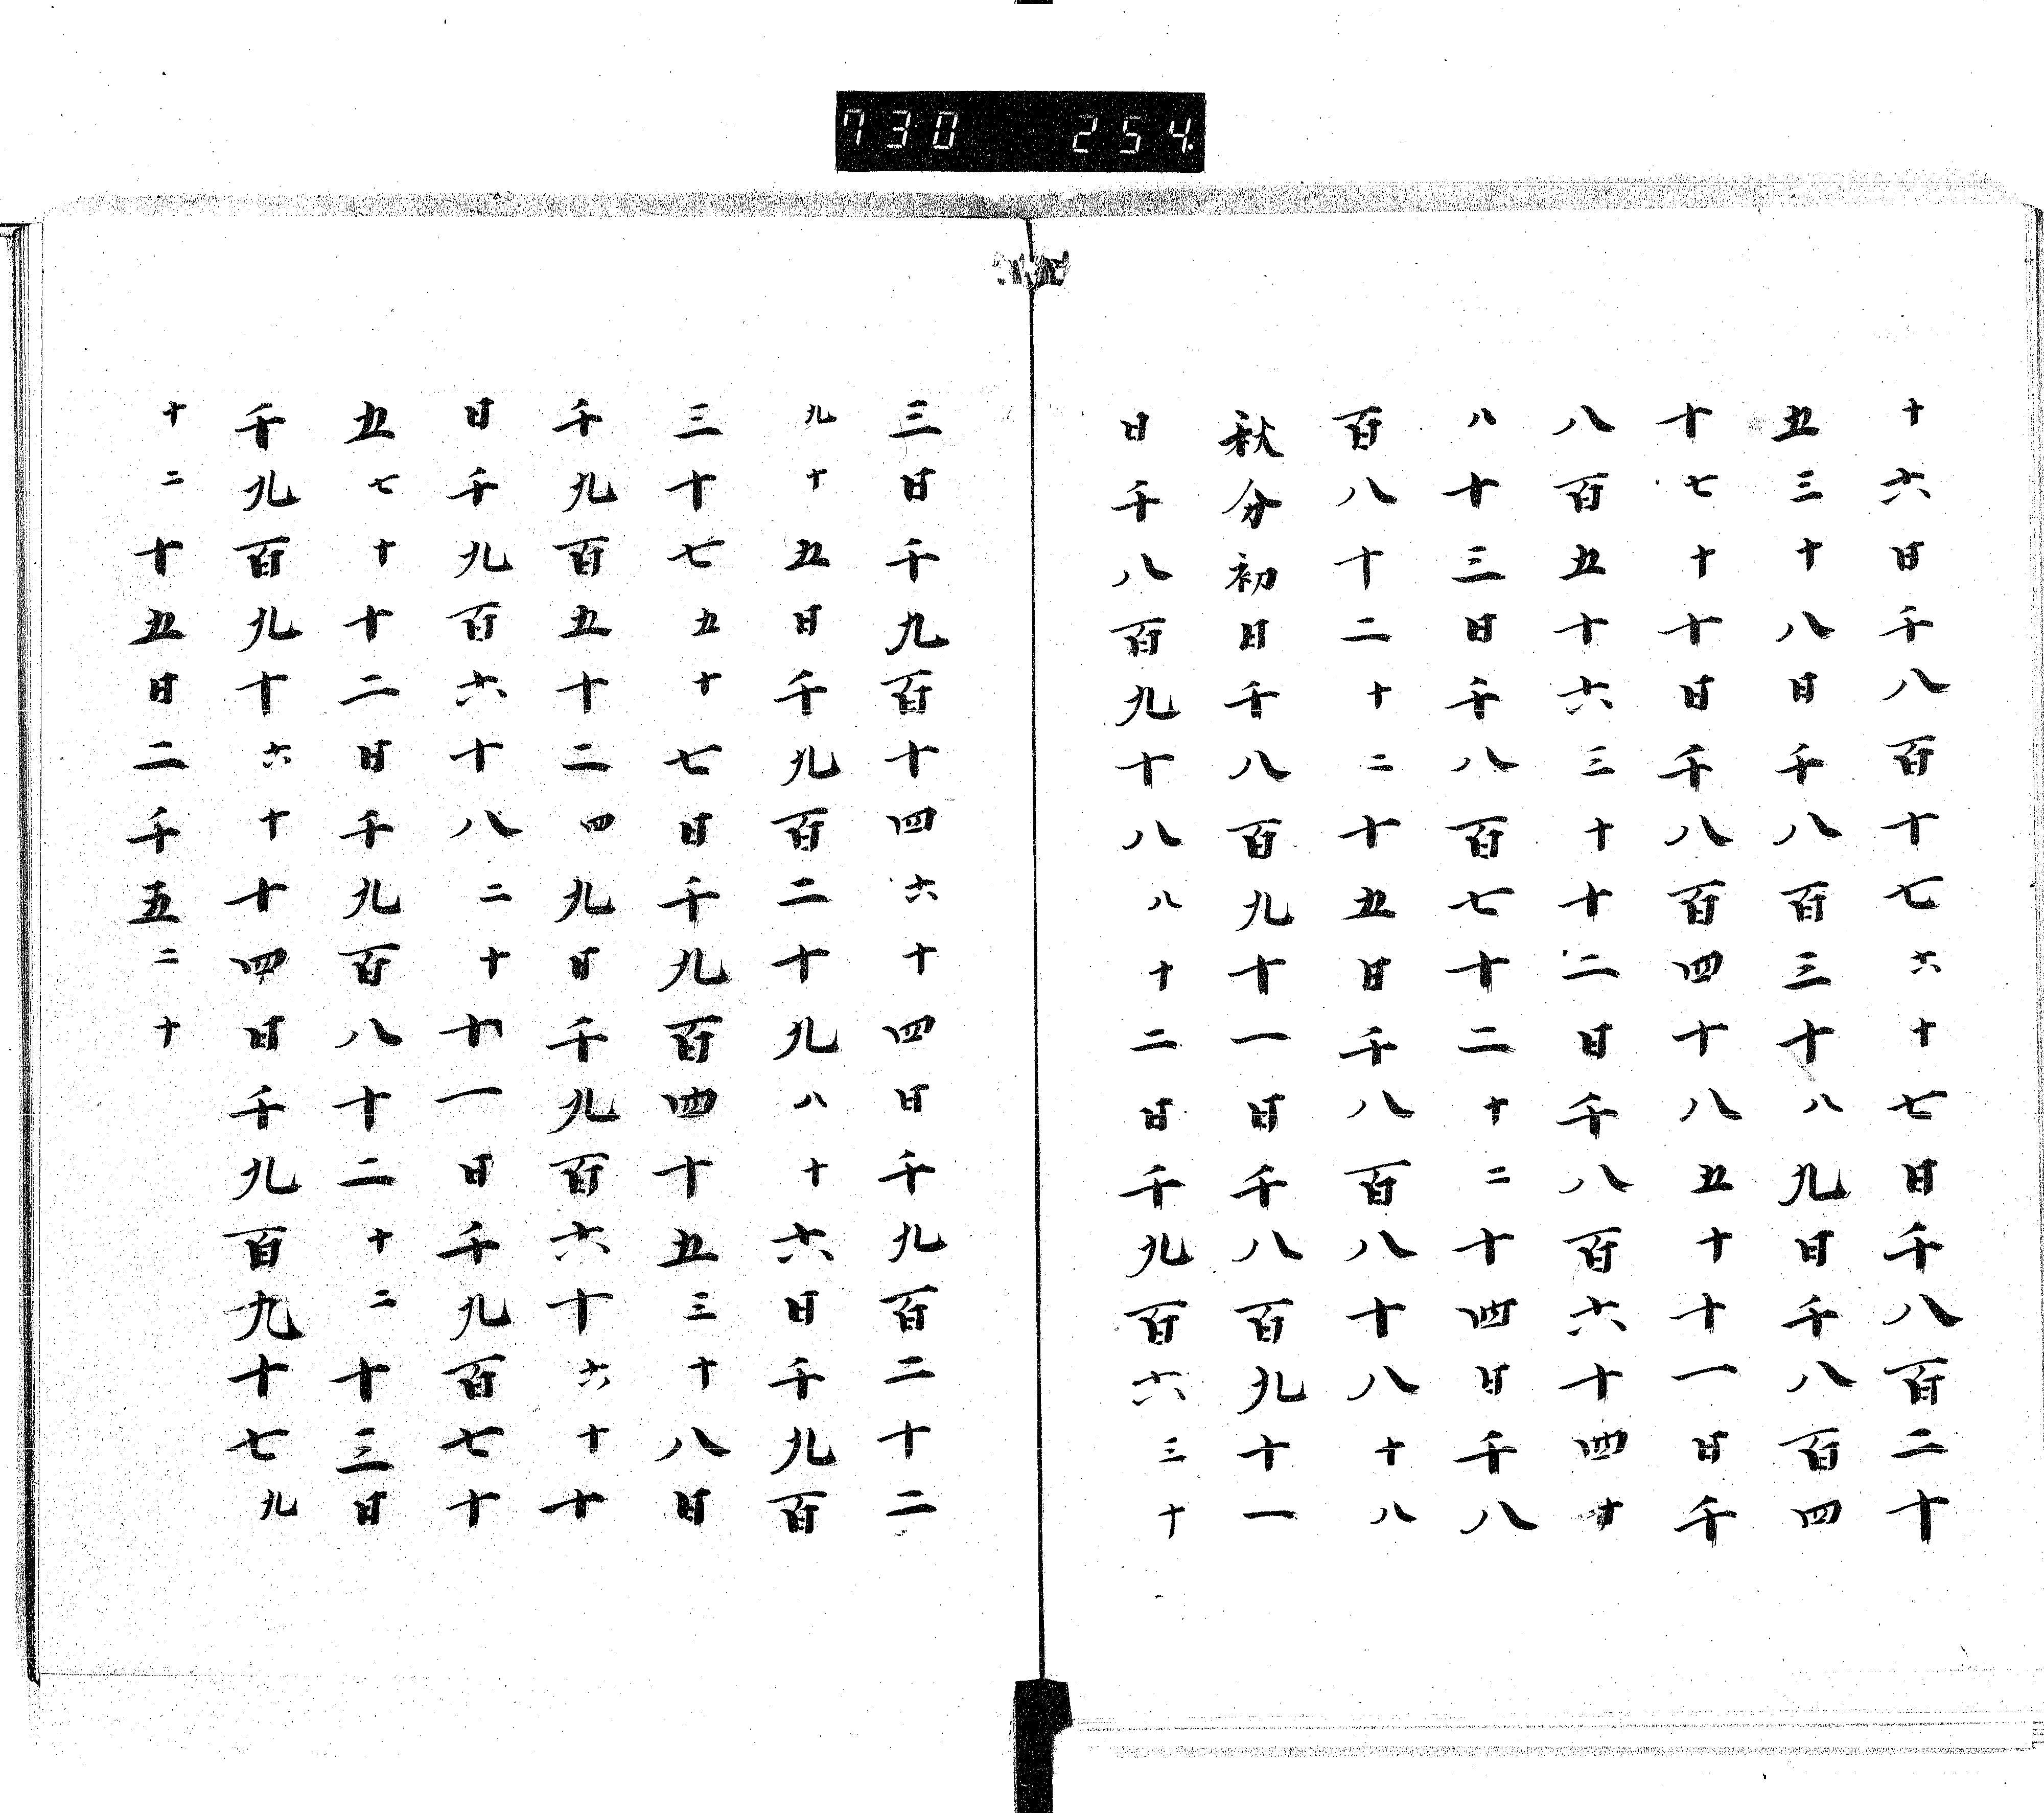 730 254.
十六日千八百十七六十七日千八百二十
五三十八日千八百三十八九日千八百四
十七十十日千八百四十八五十十一日千
八百五十六三十十二日千八百六十四十
八十三日千八百七十二十二十四日千八
百八十二十二十五日千八百八十八十八
秋分初日千八百九十一日千八百九十一
日千八百九十八八十二日千九百六三十
三日千九百十四六十四日千九百二十二
九十五日千九百二十九八十六日千九百
三十七五十七日千九百四十五三十八日
千九百五十二四九日千九百六十六十十
日千九百六十八二十十一日千九百七十
五七十十二日千九百八十二十二十三日
千九百九十六十十四日千九百九十七九
十二十五日二千五二十